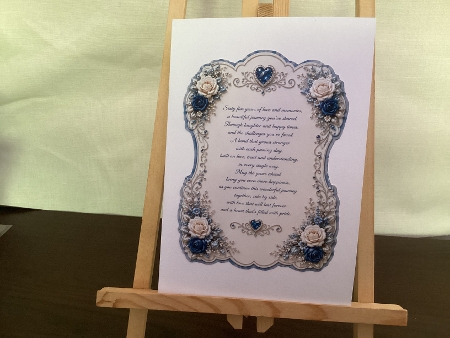 Sixty five years of love and memories,
a beautiful journey you've shared.
Through laughter and happy times,
and the challenges you've faced.
A bond that grows stronger
with each passing day,
built on love, trust and understanding,
in every single way.
May the years ahead
bring you even more happiness,
as you continue this wonderful journey
together, side by side,
with love that will last forever
and a heart that's filled with pride.